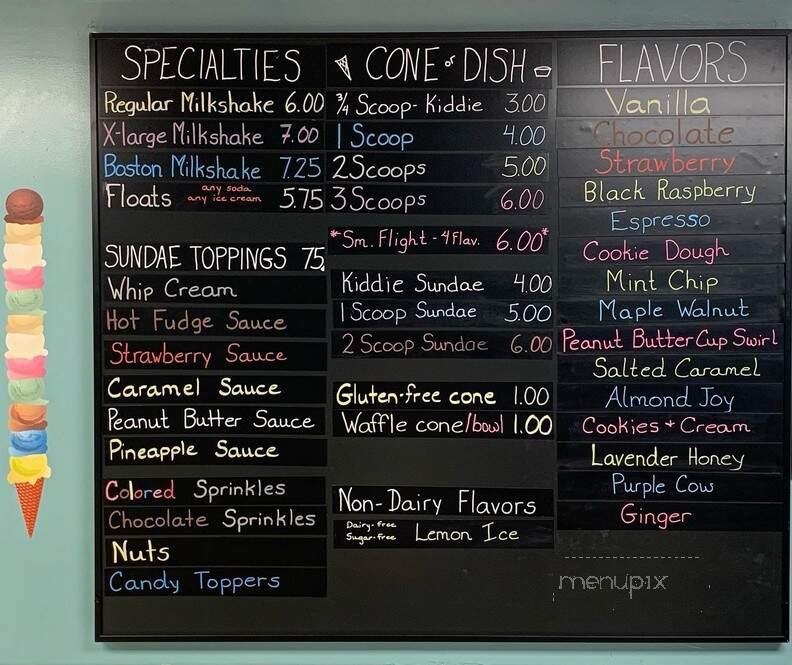 SPECIALTIES
Regular Milkshake 6.00
X-large Milkshake 7.00
Boston Milkshake 7.25
Floats any soda any ice cream 5.75
SUNDAE TOPPINGS 75
Whip Cream
Hot Fudge Sauce
Strawberry Sauce
Caramel Sauce
Peanut Butter Sauce
Pineapple Sauce
Colored Sprinkles
Chocolate Sprinkles
Nuts
Candy Toppers
CONE or DISH
3/4 Scoop- Kiddie 3.00
1 Scoop 4.00
2 Scoops 5.00
3 Scoops 6.00
*Sm. Flight - 4 Flav. 6.00*
Kiddie Sundae 4.00
1 Scoop Sundae 5.00
2 Scoop Sundae 6.00
Gluten-free cone 1.00
Waffle cone/bowl 1.00
Non-Dairy Flavors
Dairy-free
Sugar-free Lemon Ice
FLAVORS
Vanilla
Chocolate
Strawberry
Black Raspberry
Espresso
Cookie Dough
Mint Chip
Maple Walnut
Peanut Butter Cup Swirl
Salted Caramel
Almond Joy
Cookies + Cream
Lavender Honey
Purple Cow
Ginger
menupix